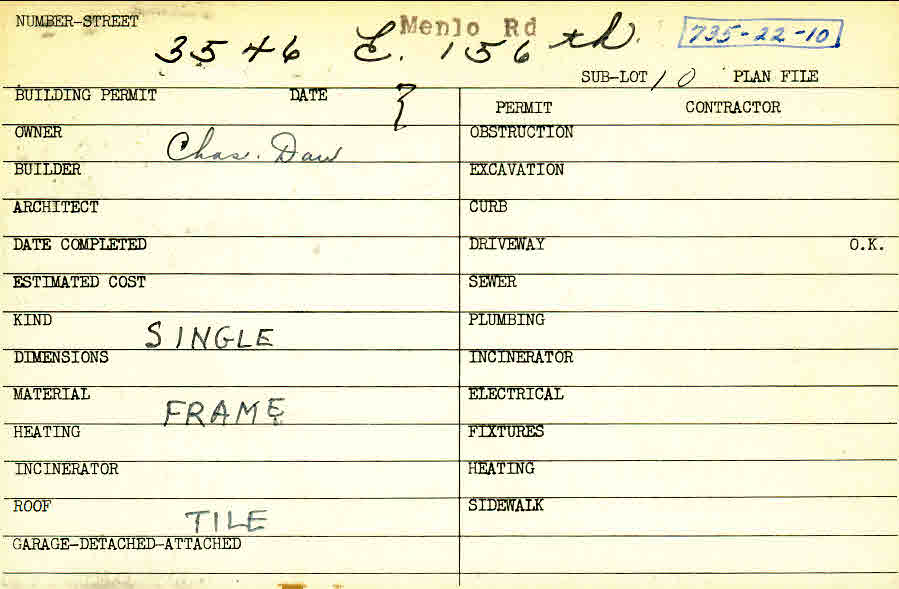 NUMBER-STREET Menlo Rd
3546 E. 156th. 735-22-10
SUB-LOT 10 PLAN FILE
BUILDING PERMIT DATE
PERMIT CONTRACTOR
OWNER Chas. Daw
OBSTRUCTION
BUILDER
EXCAVATION
ARCHITECT
CURB
DATE COMPLETED
DRIVEWAY O.K.
ESTIMATED COST
SEWER
KIND SINGLE
PLUMBING
DIMENSIONS
INCINERATOR
MATERIAL FRAME
ELECTRICAL
HEATING
FIXTURES
INCINERATOR
HEATING
ROOF TILE
SIDEWALK
GARAGE-DETACHED-ATTACHED